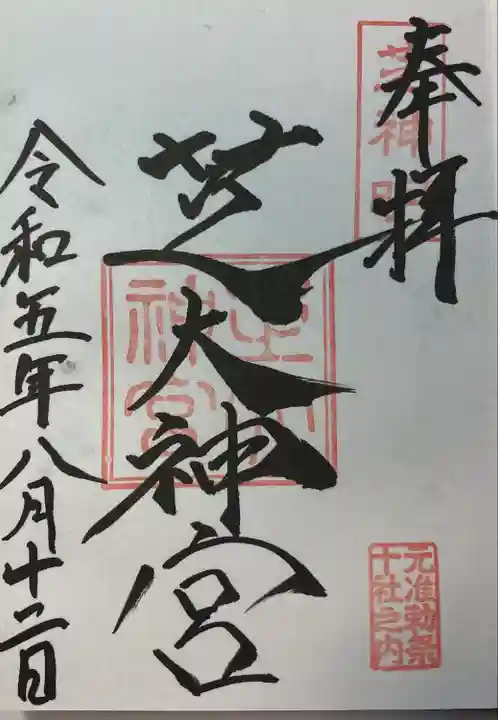 奉拝
芝神明
芝大神宮
令和五年八月十二日
元准勅祭
十社之内